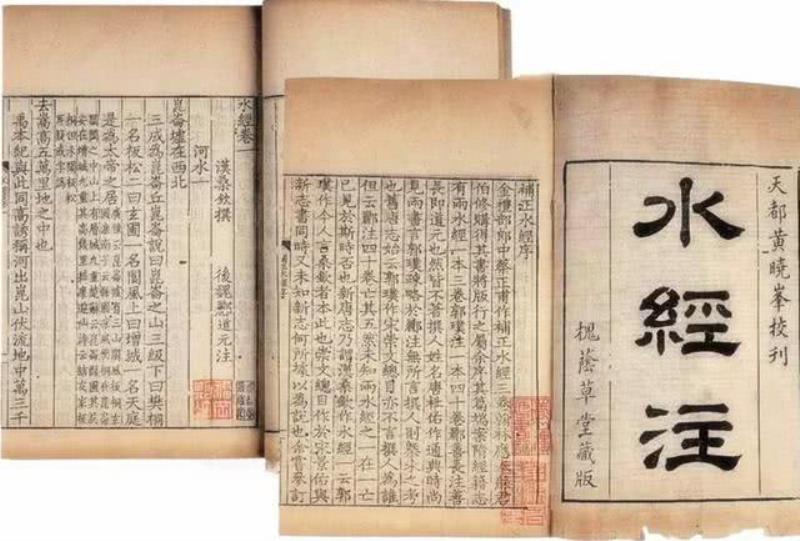 天都黄曉峯挍刊
水經注
槐蔭草堂藏版
補正水經序
金禮部郎中蔡正甫作補正水經三卷翰林應
伯修購得其書將版行之屬余序其篇端案隋經籍志
有兩水經一本三卷郭璞注一本四十卷酈善長注善
長即道元也然皆不著撰人姓名唐杜佑作通典時尚
見兩書言郭璞疎略於酈注無所言撰人則槩未之考
也舊唐志始云郭璞作宋崇文總目亦不言撰人為誰
但云酈注四十卷亡其五然未知兩水經之一在一亡
已見於斯時否也新唐志乃謂漢桑欽作水經一云郭
璞作今人言桑欽者本此也崇文總目作於宋景佑與
新志書同時又未知新志何所㨿以為說也余嘗參訂
水經卷一
漢桑欽撰
後魏酈道元注
河水一
崑崙墟在西北
三成為崑崙丘崑崙說曰崑崙之山三級下曰樊桐
一名板松二曰玄圃一名閬風上曰增城一名天庭
是為太帝之居
去嵩高五萬里地之中也
禹本紀與此同高誘稱河出崑山伏流地中萬三千